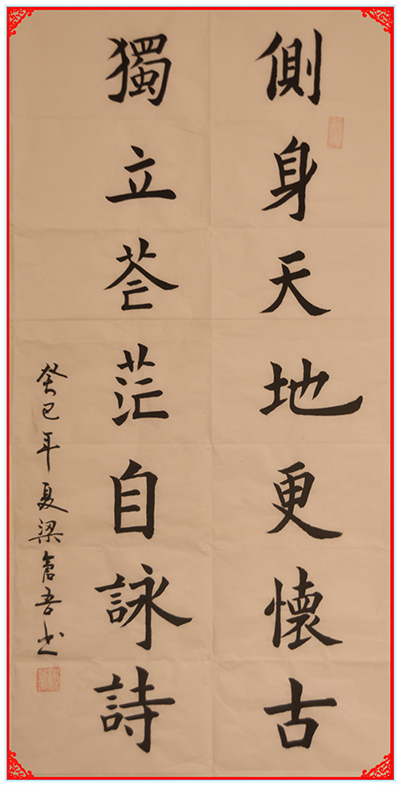 側身天地更懷古
獨立蒼茫自詠詩
癸巳年夏梁倉吾书